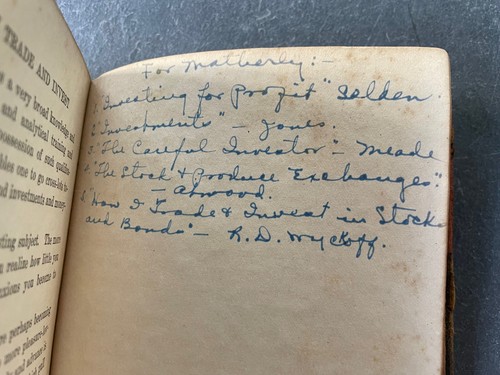 TRADE AND INVEST
a very broad knowledge and
and analytical training and
possession of such qualities
bles one to go cross-lots to
nd investments and money-
ting subject. The more
u realize how little you
nxious you become to
re perhaps becoming
more pleasure
and advance is
For Matherly:-
1 "Investing for Profit" Selden.
2 "Investments" - Jones.
3 "The Careful Investor" - Meade
4 "The Stock & Produce Exchanges"
- Atwood.
5 "How I Trade & Invest in Stocks
and Bonds" - R.D. Wyckoff.